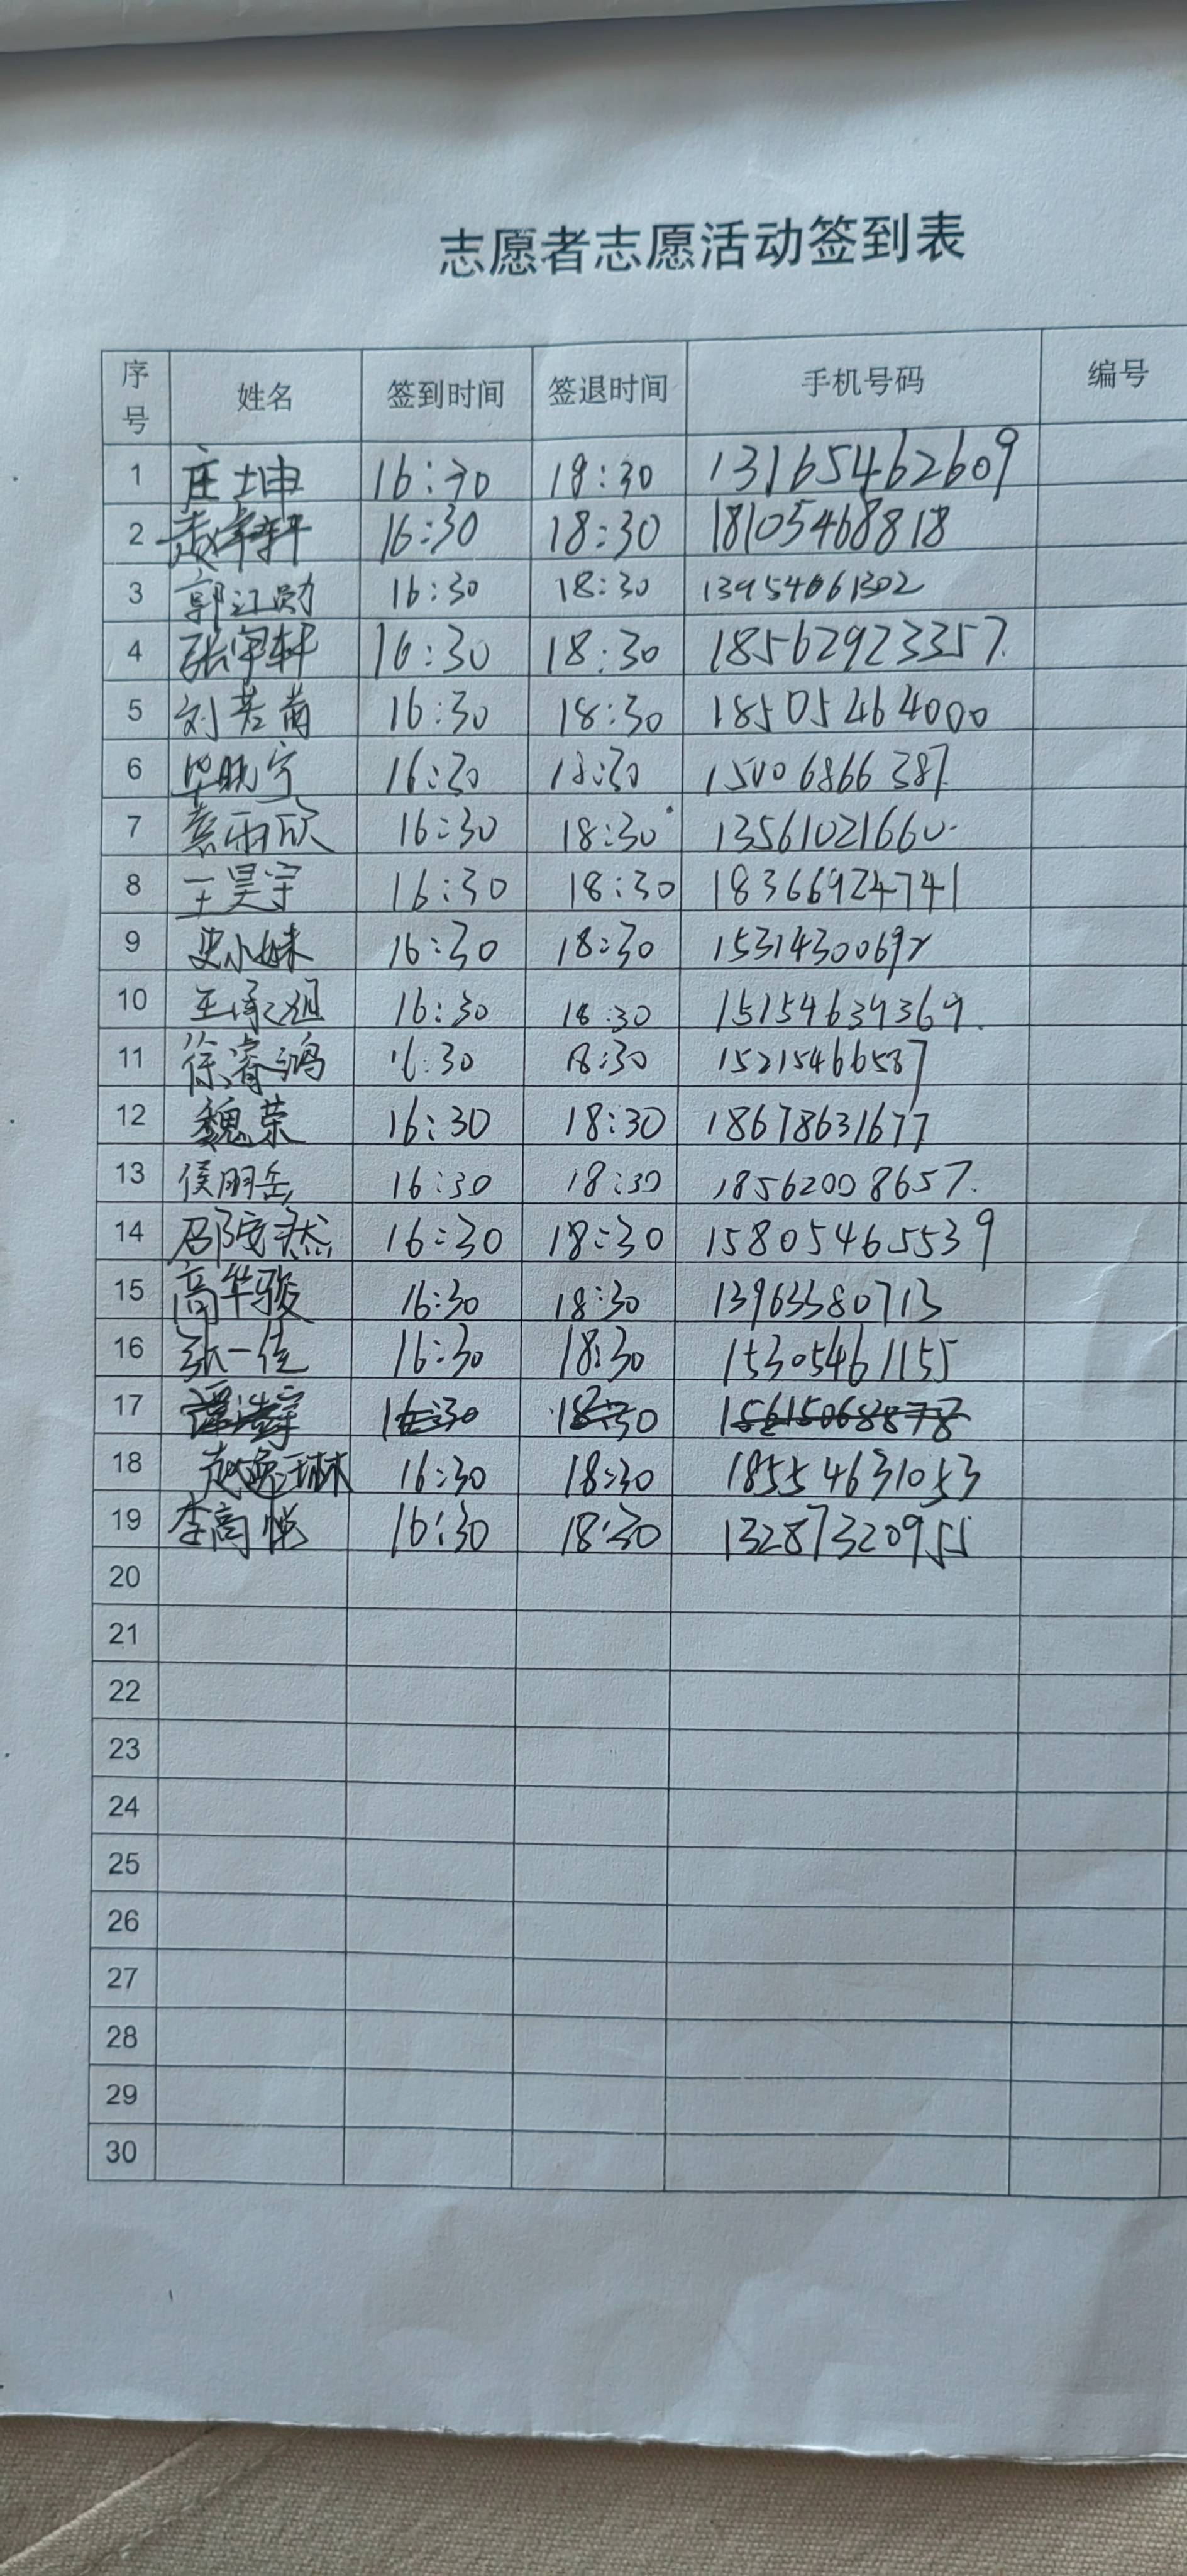 志愿者志愿活动签到表
序号 姓名 签到时间 签退时间 手机号码 编号
1 庄坤 16:30 18:30 13165462609
2 16:30 18:30 18105468818
3 郭江勋 16:30 18:30 13954661302
4 张宇轩 16:30 18:30 18562923357.
5 刘若萌 16:30 18:30 18505464000
6 毕晓宁 16:30 18:30 15006866387.
7 袁雨欣 16:30 18:30 13561021660.
8 王昊宇 16:30 18:30 18366924741
9 史小妹 16:30 18:30
10 16:30 18:30 15154639369.
11 徐睿鸿 16:30 18:30 15215466587
12 魏荣 16:30 18:30 18678631677
13 侯朋岳 16:30 18:30 18562008657.
14 邵安然 16:30 18:30 15805465539
15 高华骏 16:30 18:30 13963380713
16 张一佳 16:30 18:30 15305461155
17 16:30 18:30 15615068878
18 赵逸琳 16:30 18:30 18554631053
19 李高悦 16:30 18:30 13287320955
20
21
22
23
24
25
26
27
28
29
30